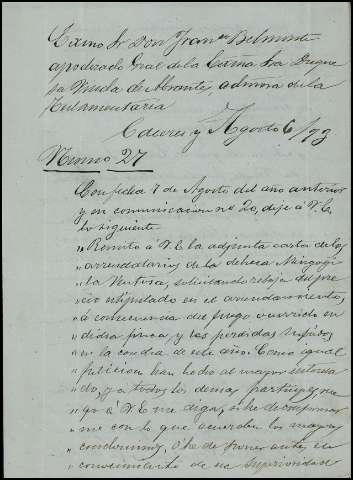 Exmo Sr Don Fran.co Belmonte
apoderado Gral de la Excma Sra Duque
sa Viuda de Abrantes, admora de la
Testamentaria
Cáceres y Agosto 6/73
Numo 27
Con fecha 7 de Agosto del año anterior
y en comunicacion no 20, dije á V.E.
lo siguiente
"Remito á V.E. la adjunta carta de los
"arrendatarios de la dehesa
"la Ventosa, solicitando rebaja del pre
"cio estipulado en el arrendamiento,
"á consecuencia del fuego ocurrido en
"dicha finca, y las perdidas sufridas
"en la de este año. Como igual
"peticion han hecho al mayor interesa
"do, y á todos los demas participes, rue
"go á V.E. me diga, si he de conformar
"me con lo que acuerden los mayores
"condueños, ó he de poner antes en
"conocimiento de su superioridad